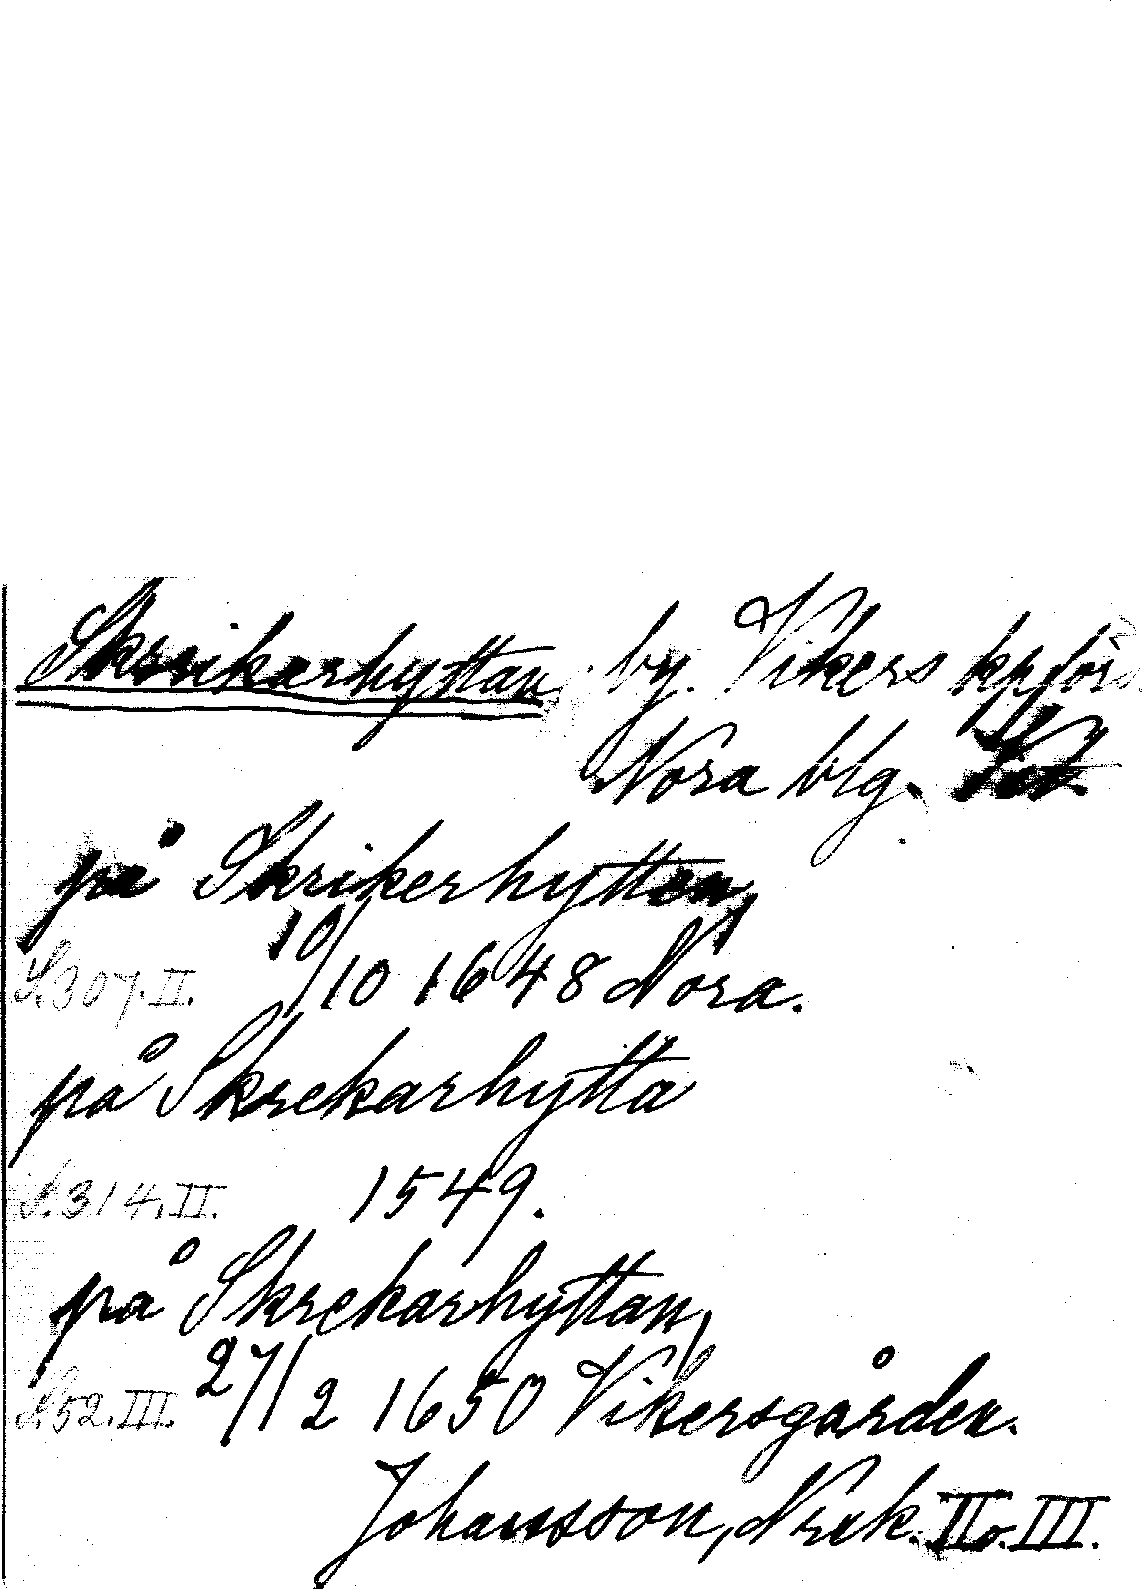 Skrikarhyttan by. Vikers kpförs
Nora blg.
på Skrikerhytten,
S.307.II. 10/10 1648 Nora.
på Skrekarhytta
S.314.II. 1549.
på Skrekarhyttan,
S.52.III. 27/2 1650 Vikersgården.
Johansson, Nrik. II o. III.